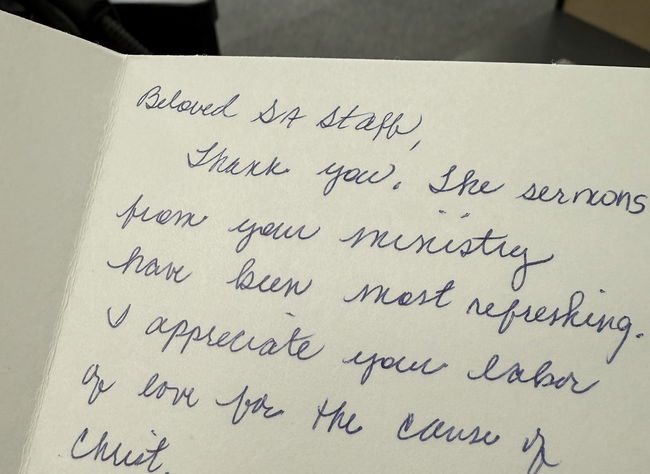 Beloved SA Staff,
Thank you. The sermons
from your ministry
have been most refreshing.
I appreciate your labor
of love for the cause of
Christ.